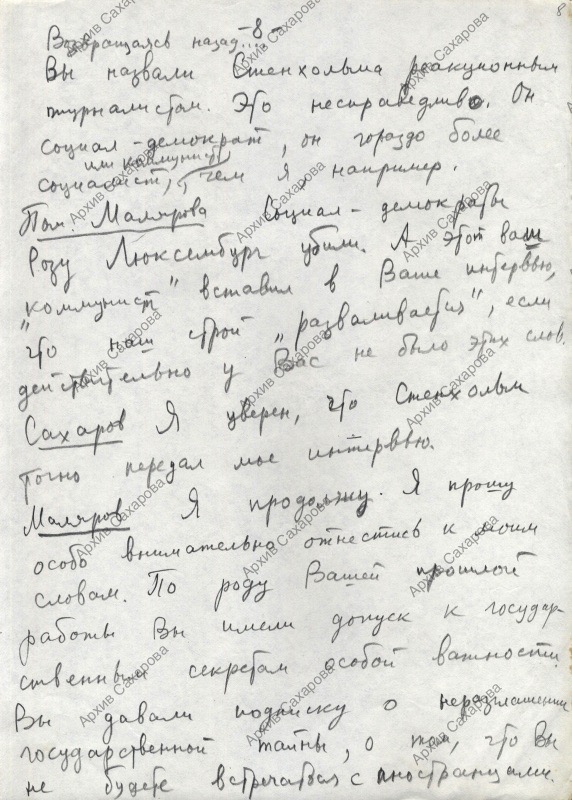 8
-8-
Возвращаясь назад...
Вы назвали Стенхольма реакционным
журналистом. Это несправедливо. Он
социал-демократ, он гораздо более
или коммунист
социалист, чем я, например.
Пом. Малярова Социал-демократы
Розу Люксембург убили. А этот ваш
"коммунист" вставил в Ваше интервью,
что наш строй "разваливается", если
действительно у Вас не было этих слов.
Сахаров Я уверен, что Стенхольм
точно передал мое интервью.
Маляров Я продолжу. Я прошу
особо внимательно отнестись к моим
словам. По роду Вашей прошлой
работы Вы имели допуск к государ-
ственным секретам особой важности.
Вы давали подписку о неразглашении
государственной тайны, о том, что Вы
не будете встречаться с иностранцами.
Архив Сахарова